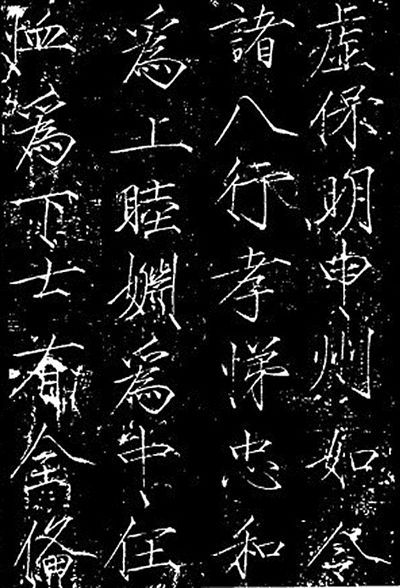 虛保明申州如令
諸八行孝悌忠和
爲上睦婣爲中任
恤爲下士有全偹